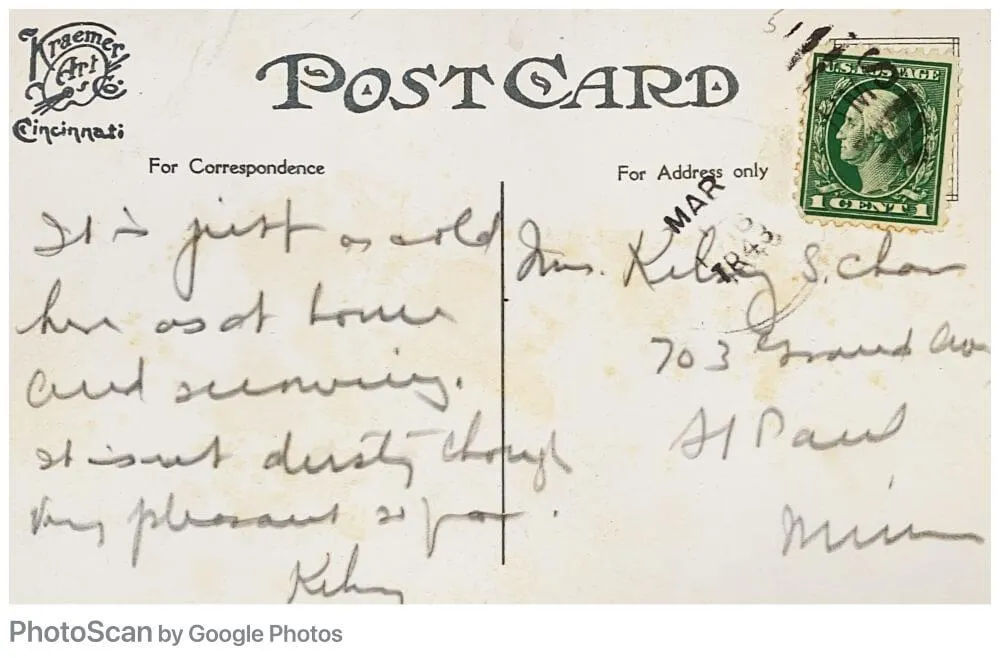 Kraemer
Art
Co.
Cincinnati
POST CARD
For Correspondence
For Address only
U.S. POSTAGE
1 CENT 1
MAR
1843
It is just as cold
here as at home
and snowing.
It isn't dusty though
Very pleasant so far.
Kelsey
Mrs. Kelsey S. Chase
703 Grand Ave
St Paul
Minn
PhotoScan by Google Photos